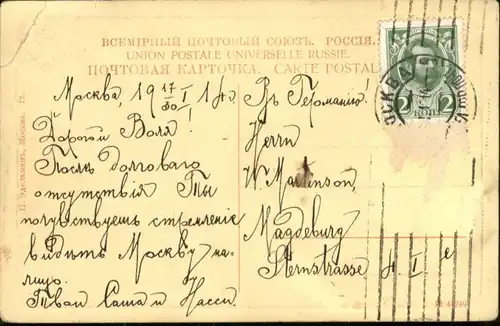 ВСЕМІРНЫЙ ПОЧТОВЫЙ СОЮЗЪ. РОССІЯ.
UNION POSTALE UNIVERSELLE RUSSIE.
ПОЧТОВАЯ КАРТОЧКА. CARTE POSTALE
Москва, 19 17/30 I 14 г.
Дорогой Воля!
Послѣ долговаго
отсутствія Ты
почувствуешь стремленіе
видѣть Москву на-
лицо.
Твои Саша и Насси.
Въ Германію!
Herrn
W. Martinson,
Magdeburg
Sternstrasse 4. I. e
2 2
КОП
МОСКВА